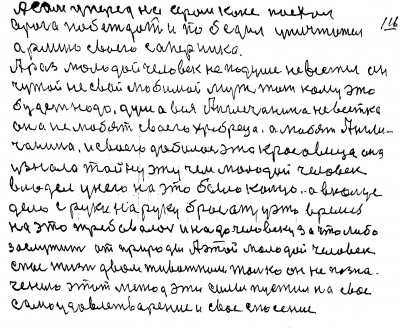 а сам уперед на сером коне поехал
116
врага побеждать и победил уничтожил
армию своего соперника.
А раз молодой человек на подушке невесте он
чужой не свой любимой муж тит кому это
будет надо, душа вся Англичанина невестка
она не любят своего храбреца, а любят Англи-
чанина, и своего добилася это красавица она
узнала тайну эту чем молодой человек
владел у него на это было кольцо.. а в кольце
дело с руки на руку бросать уэто время
на это требовалось и надо человеку за что либо
заслужить от природы А этой молодой человек
спас жизн двоим животным только он не позна-
чению этит метод эти силы пустил на свое
самоудовлетварение и свое спосение